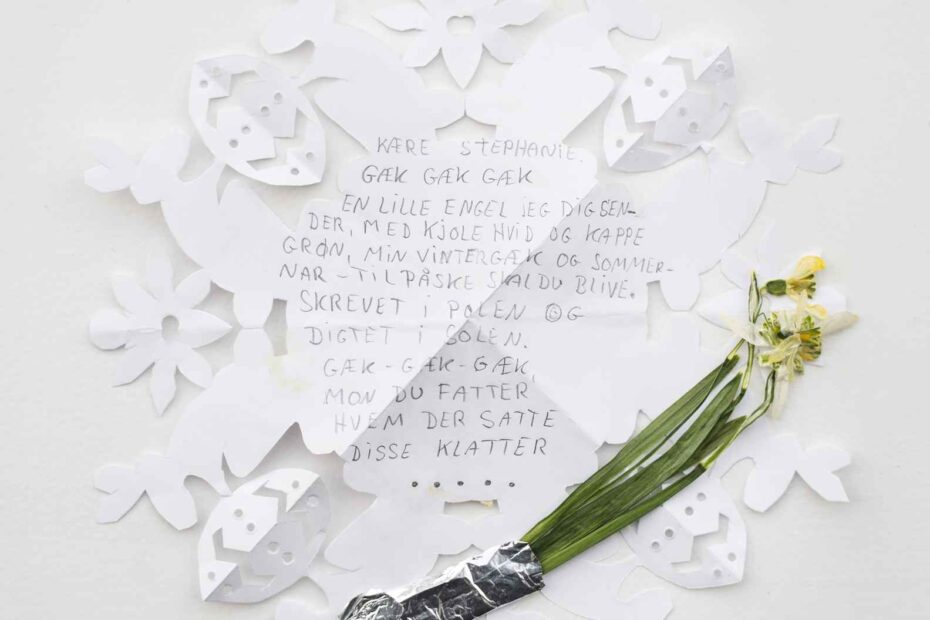 KÆRE STEPHANIE.
GÆK GÆK GÆK
EN LILLE ENGEL JEG DIG SEN-
DER, MED KJOLE HVID OG KAPPE
GRØN, MIN VINTERGÆK OG SOMMER-
NAR - TIL PÅSKE SKAL DU BLIVE.
SKREVET I POLEN OG
DIGTET I SOLEN.
GÆK - GÆK - GÆK,
MON DU FATTER
HVEM DER SATTE
DISSE KLATTER
. . . . .